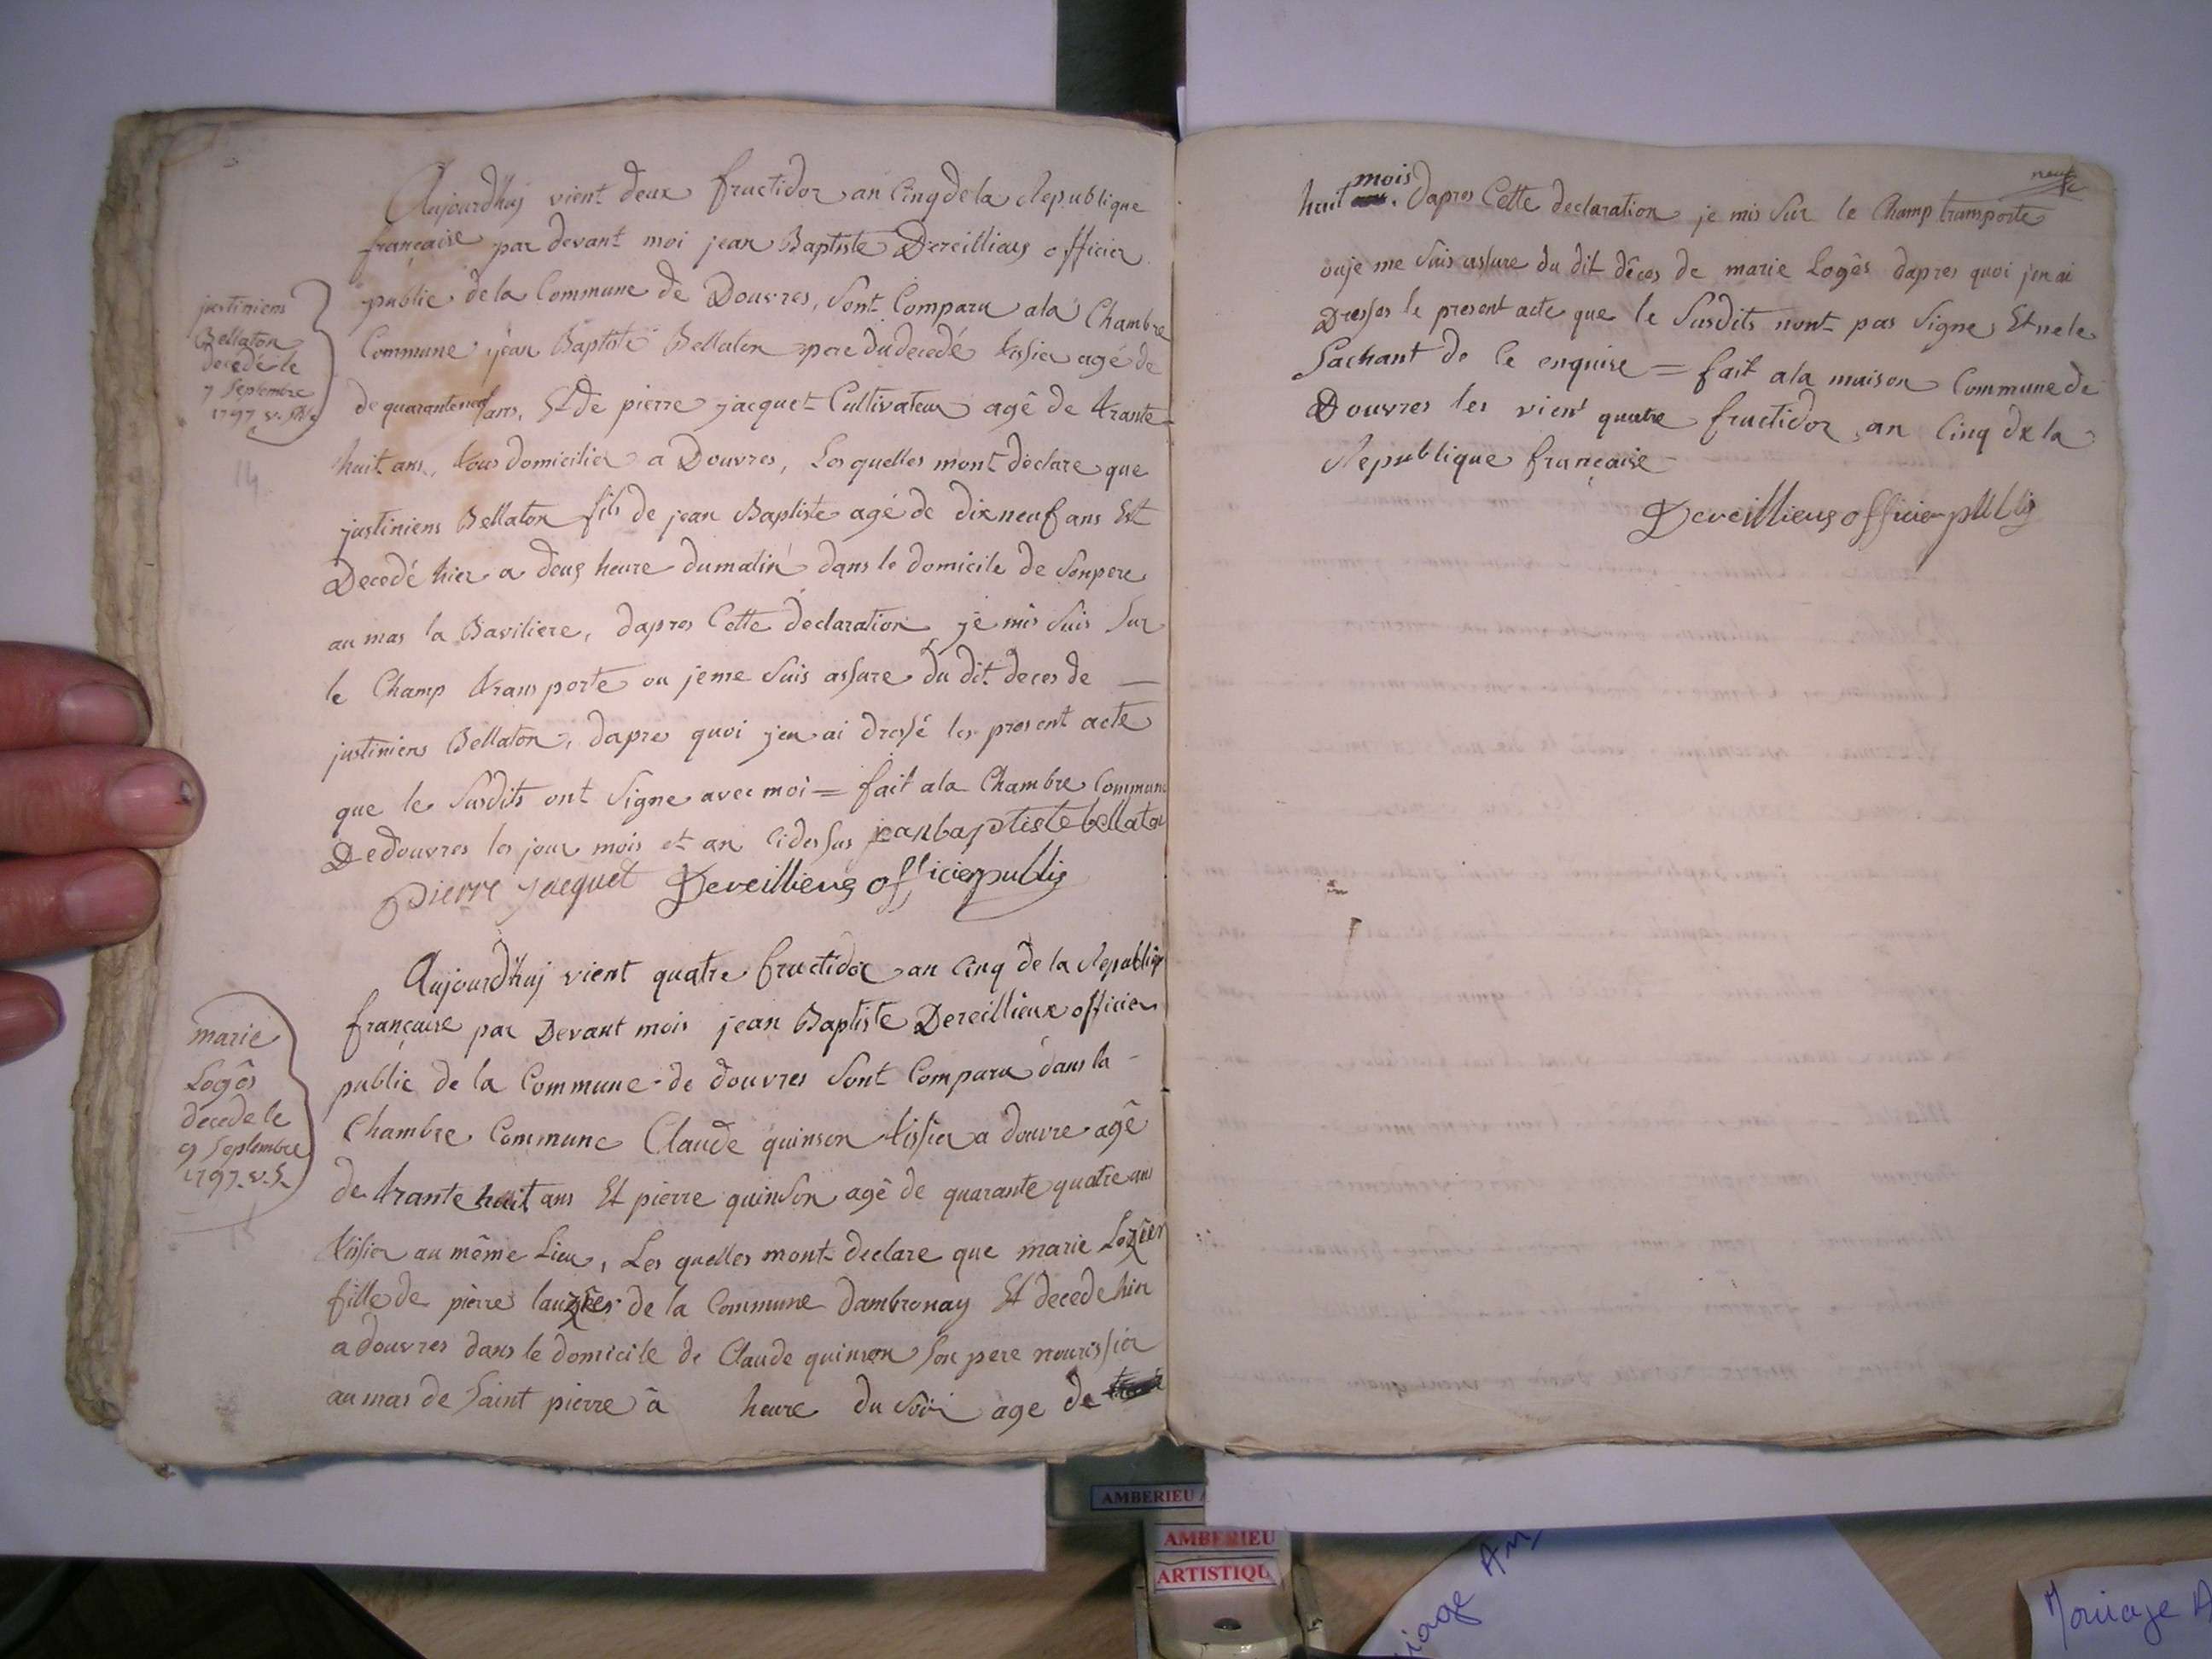 Aujourdhuj vient deux fructidor an Cinq de la Republique
française par devant moi jean Baptiste Dereillieus officier
public de la Commune de Douvres, Sont Comparu ala Chambre
Commune jean Baptiste Bellaton pere du decedé tissier agé de
de quaranteneuf ans, Et de pierre jacquet Cultivateur agé de trante
huit ans, tous domicilier a Douvres, Les quelles mont declare que
justiniens Bellaton fils de jean Baptiste agé de dixneuf ans Est
Decedé hier a deus heure dumatin dans le domicile de Sonpere
au mas la Baviliere, dapres Cette declaration je mis Suis Sur
le Champ transporte ou jeme Suis assure du dit deces de —
justiniens Bellaton, dapre quoi jen ai dressé les present acte
que le Susdits ont Signe avec moi = fait ala Chambre Commune
Dedouvres les jour mois et an cidessus jeanbaptistebellaton
pierre jacquet Deveilliens officier publig
justiniens
Bellaton
decedé le
7 Septembre
1797 v. St.
14
Aujourdhuj vient quatre fructidor an Cinq de la Republiq
française par Devant mois jean Baptiste Dereillieux officier
public de la Commune de douvres Sont Comparu dans la
Chambre Commune Claude quinson tissier a douvre agé
de trante huit ans Et pierre quinson agé de quarante quatre ans
tissier au même Lieu, Les quelles mont declare que marie Lozier
fille de pierre lauzier de la Commune dambronay Et decede hier
a douvres dans le domicile de Claude quinson Son pere nourissier
au mas de Saint pierre â heure du Soir age de
marie
Logês
decede le
9 Septembre
1797. v. S.
15
neuf
mois
huit . Dapres Cette declaration je mis Sur le Champ transporte
ouje me Suis assure du dit dêces de marie Logês dapres quoi jen ai
Dresses le present acte que le Susdits nont pas Signe, Et ne le
Sachant de Ce enquise = fait ala maison Commune de
Douvres les vient quatre fructidor an Cinq de la
Republique française
Deveilliens officier publig
AMBERIEU A
AMBERIEU
ARTISTIQU
Mariage A